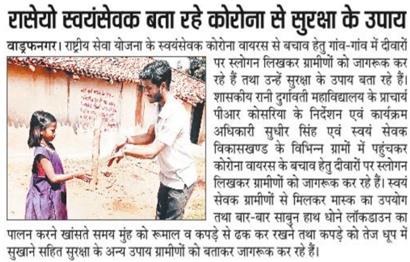 रासेयो स्वयंसेवक बता रहे कोरोना से सुरक्षा के उपाय
वाड्रफनगर। राष्ट्रीय सेवा योजना के स्वयंसेवक कोरोना वायरस से बचाव हेतु गांव-गांव में दीवारों
पर स्लोगन लिखकर ग्रामीणों को जागरूक कर
रहे हैं तथा उन्हें सुरक्षा के उपाय बता रहे हैं।
शासकीय रानी दुर्गावती महाविद्यालय के प्राचार्य
पीआर कोसरिया के निर्देशन एवं कार्यक्रम
अधिकारी सुधीर सिंह एवं स्वयं सेवक
विकासखण्ड के विभिन्न ग्रामों में पहुंचकर
कोरोना वायरस के बचाव हेतु दीवारों पर स्लोगन
लिखकर ग्रामीणों को जागरूक कर रहे हैं। स्वयं
सेवक ग्रामीणों से मिलकर मास्क का उपयोग
तथा बार-बार साबुन हाथ धोने लॉकडाउन का
पालन करने खांसते समय मुंह को रूमाल व कपड़े से ढक कर रखने तथा कपड़े को तेज धूप में
सुखाने सहित सुरक्षा के अन्य उपाय ग्रामीणों को बताकर जागरूक कर रहे हैं।